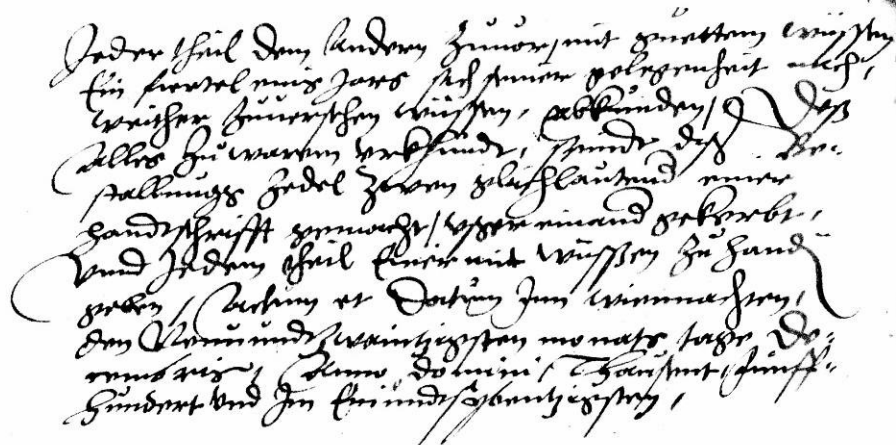 Jeder theil dem Andern zuuor, mit guettem wüssen
Ein fiertel eins Jars sich seiner gelegenheit nach,
weither zuuersehen wüssen, abkünden, Deß
Alles zu warem vrkhundt, seindt diß Be-
stallungs Zedel zwen glichlautend einer
handtschrifft gemacht, vsser einand gekerbt,
Vnd Jedem theil Einer mit wüssen zu handen
geben, Actum et Datum Jnn wiennachten,
den Neunundtzwaintzigsten monats tage De-
cembris, Anno domini, Thausent, fünff-
hundert vnd Jm Einundtsybentzigsten,